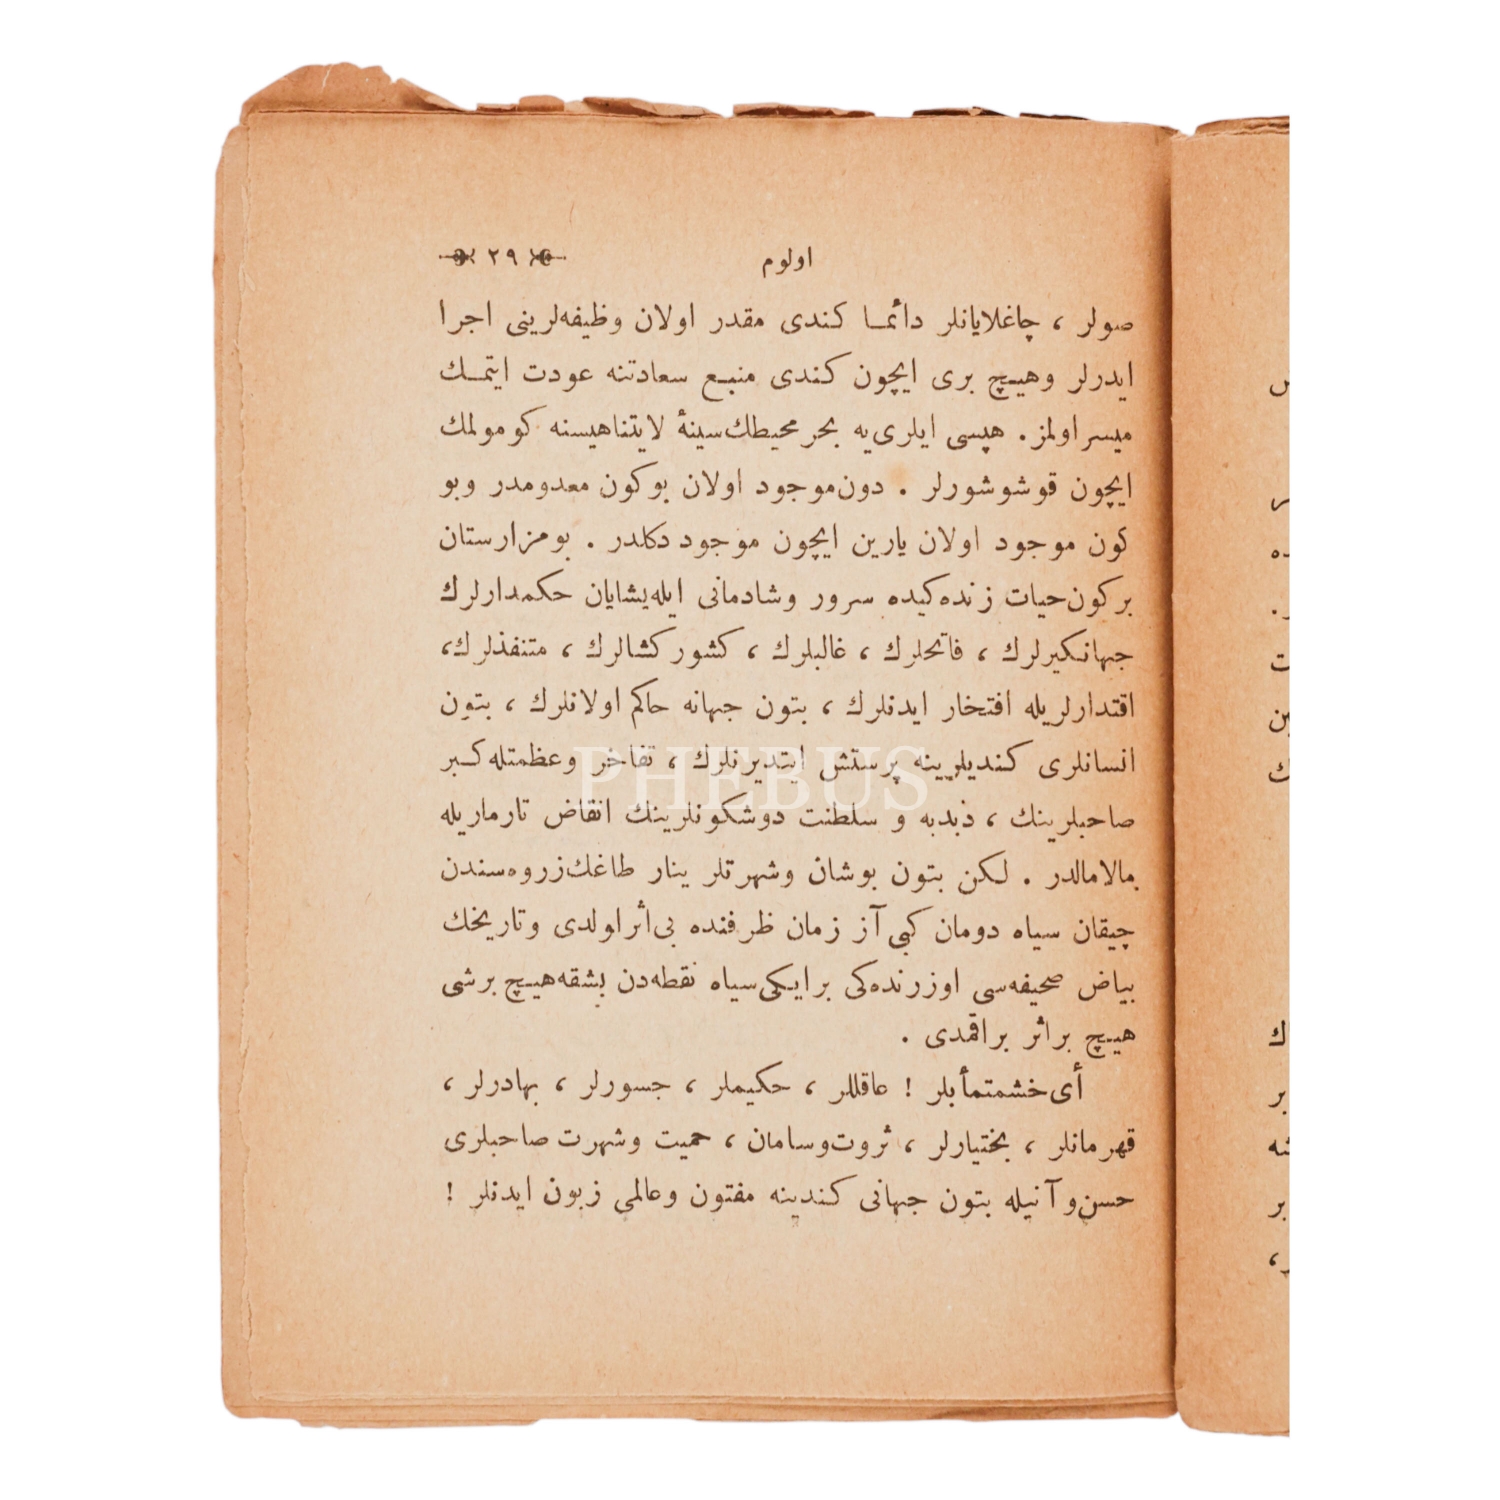 اولوم ٢٩
صولر ، چاغلايانلر دائمـا كندى مقدر اولان وظيفه‌لرينى اجرا
ايدرلر وهيـچ برى ايچون كندى منبـع سعادتنه عودت ايتمـك
ميسر اولمز . هپسى ايلرى‌يه بحر محيطك سينۀ لايتناهيسنه كومولمك
ايچون قوشوشورلر . دون موجود اولان بوكون معدومدر وبو
كون موجود اولان يارين ايچون موجود دكلدر . بومزارستان
بركون حيات زنده‌كيده سرور وشادمانى ايله يشايان حكمدارلرك
جهانكيرلرك ، فاتحلرك ، غالبلرك ، كشور كشالرك ، متنفذلرك،
اقتدارلريله افتخار ايدنلرك ، بتون جهانه حاكم اولانلرك ، بتون
انسانلرى كنديلرينه پرستش ايتديرنلرك ، تفاخر وعظمتله كبر
PHEBUS
صاحبلرينك ، دبدبه و سلطنت دوشكونلرينك انقاض تارماريله
مالامالدر . لكن بتون بوشان وشهرتلر ينار طاغك زروه‌سندن
چيقان سياه دومان كبى آز زمان ظرفنده بى‌اثر اولدى وتاريخك
بياض صحيفه‌سى اوزرنده‌كى برايكى سياه نقطه‌دن بشقه هيـچ برشى
هيـچ براثر براقمدى .
أى خشمتمأبلر ! عاقللر ، حكيملر ، جسورلر ، بهادرلر ،
قهرمانلر ، بختيارلر ، ثروت وسامان ، حميت وشهرت صاحبلرى
حسن وآنيله بتون جهانى كندينه مفتون وعالمى زبون ايدنلر !